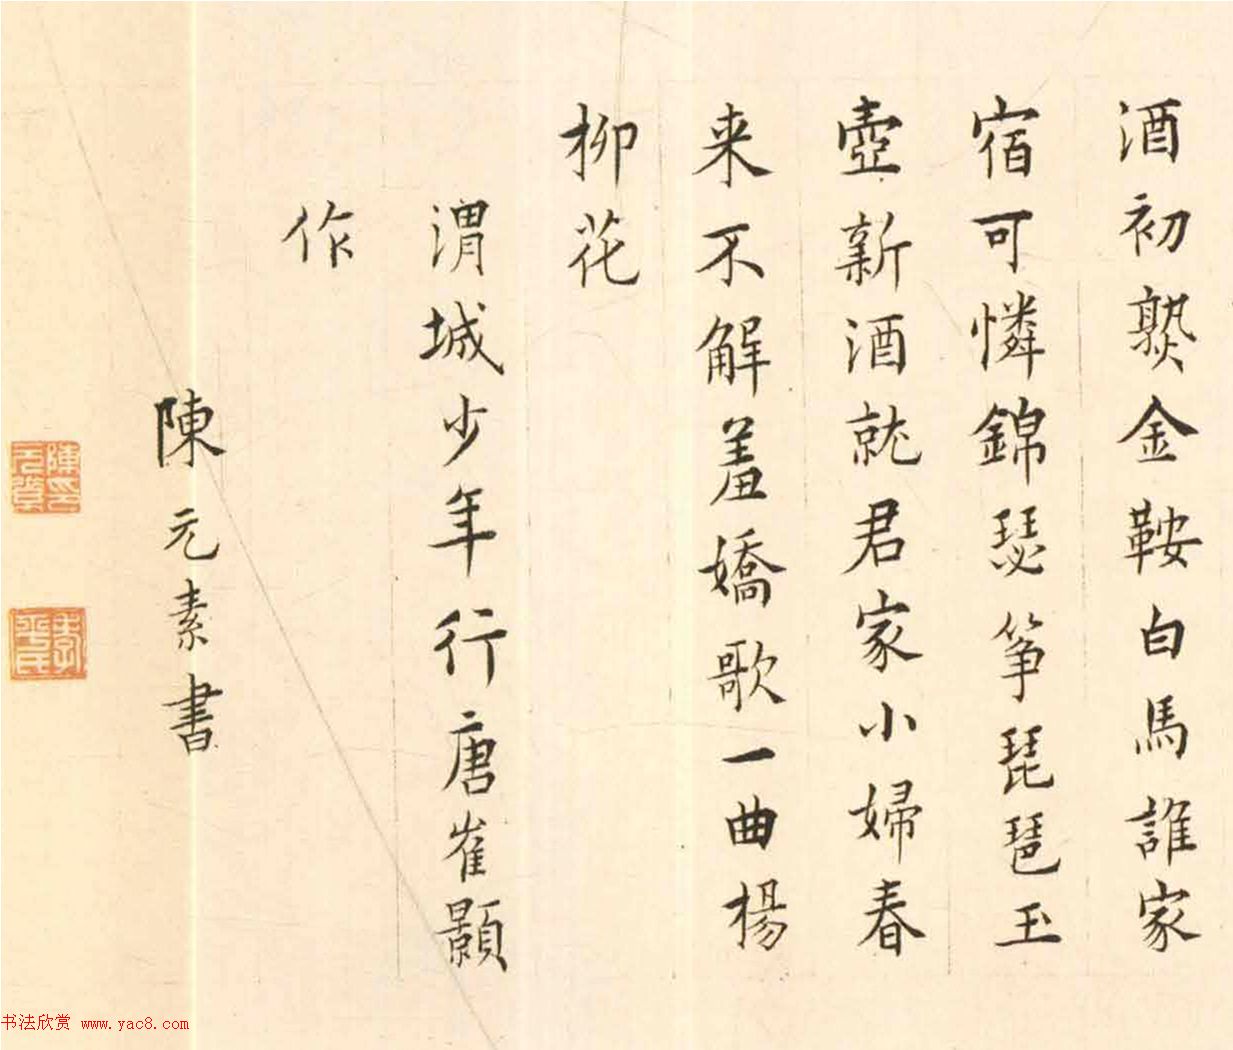 酒初熟金鞍白馬誰家
宿可憐錦瑟箏琵琶玉
壺新酒就君家小婦春
来不解羞嬌歌一曲楊
柳花
渭城少年行唐崔顥
作
陳元素書
书法欣赏 www.yac8.com